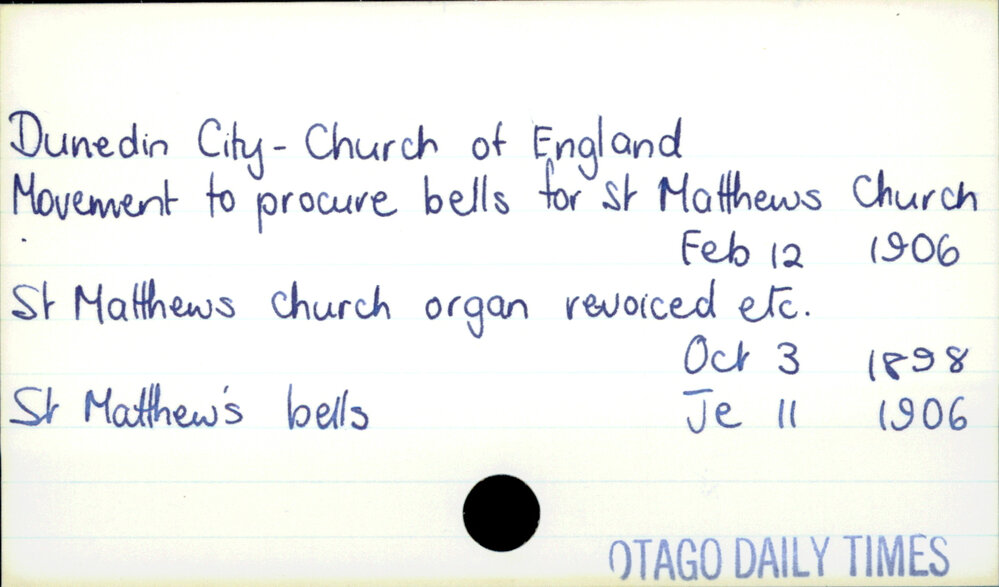 Dunedin City - Church of England
Movement to procure bells for St Matthews Church
Feb 12 1906
St Matthews church organ revoiced etc.
Oct 3 1898
St Matthew's bells Je 11 1906
OTAGO DAILY TIMES